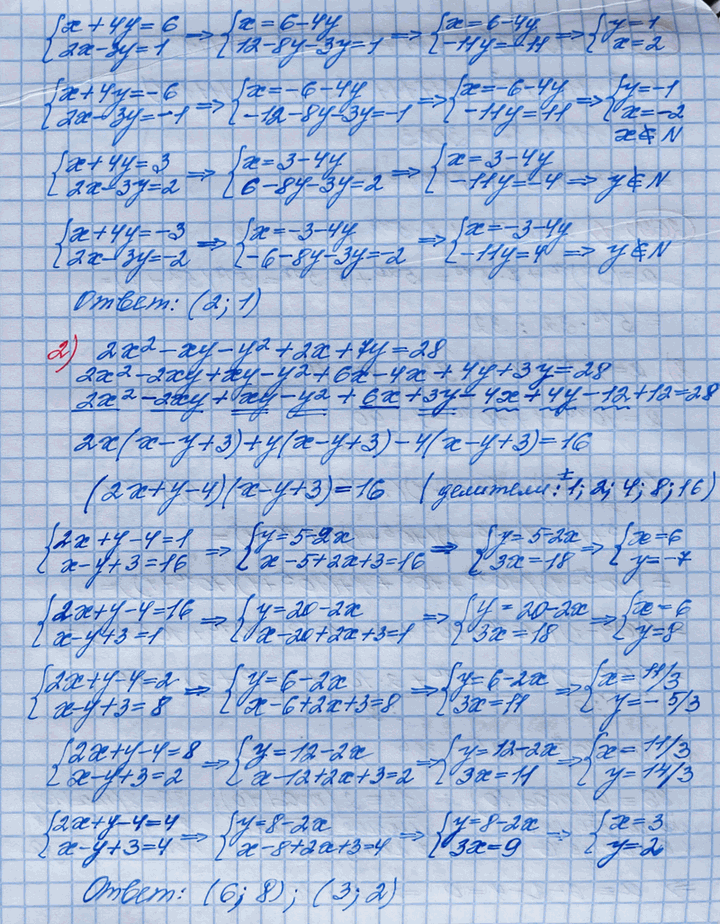 {x+4y=6 {2x-3y=1 => {x=6-4y {12-8y-3y=1 => {x=6-4y {-11y=-11 => {y=1 {x=2
{x+4y=-6 {2x-3y=-1 => {x=-6-4y {-12-8y-3y=-1 => {x=-6-4y {-11y=11 => {y=-1 {x=-2
x∉N
{x+4y=3 {2x-3y=2 => {x=3-4y {6-8y-3y=2 => {x=3-4y {-11y=-4 => y∉N
{x+4y=-3 {2x-3y=-2 => {x=-3-4y {-6-8y-3y=-2 => {x=-3-4y {-11y=4 => y∉N
Ответ: (2; 1)
2) 2x²-xy-y²+2x+7y=28
2x²-2xy+xy-y²+6x-4x+4y+3y=28
2x²-2xy+xy-y²+6x+3y-4x+4y-12+12=28
2x(x-y+3)+y(x-y+3)-4(x-y+3)=16
(2x+y-4)(x-y+3)=16 (делители: ±1; 2; 4; 8; 16)
{2x+y-4=1 {x-y+3=16 => {y=5-2x {x-5+2x+3=16 => {y=5-2x {3x=18 => {x=6 {y=-7
{2x+y-4=16 {x-y+3=1 => {y=20-2x {x-20+2x+3=1 => {y=20-2x {3x=18 => {x=6 {y=8
{2x+y-4=2 {x-y+3=8 => {y=6-2x {x-6+2x+3=8 => {y=6-2x {3x=11 => {x=11/3 {y=-5/3
{2x+y-4=8 {x-y+3=2 => {y=12-2x {x-12+2x+3=2 => {y=12-2x {3x=11 => {x=11/3 {y=14/3
{2x+y-4=4 {x-y+3=4 => {y=8-2x {x-8+2x+3=4 => {y=8-2x {3x=9 => {x=3 {y=2
Ответ: (6; 8); (3; 2)